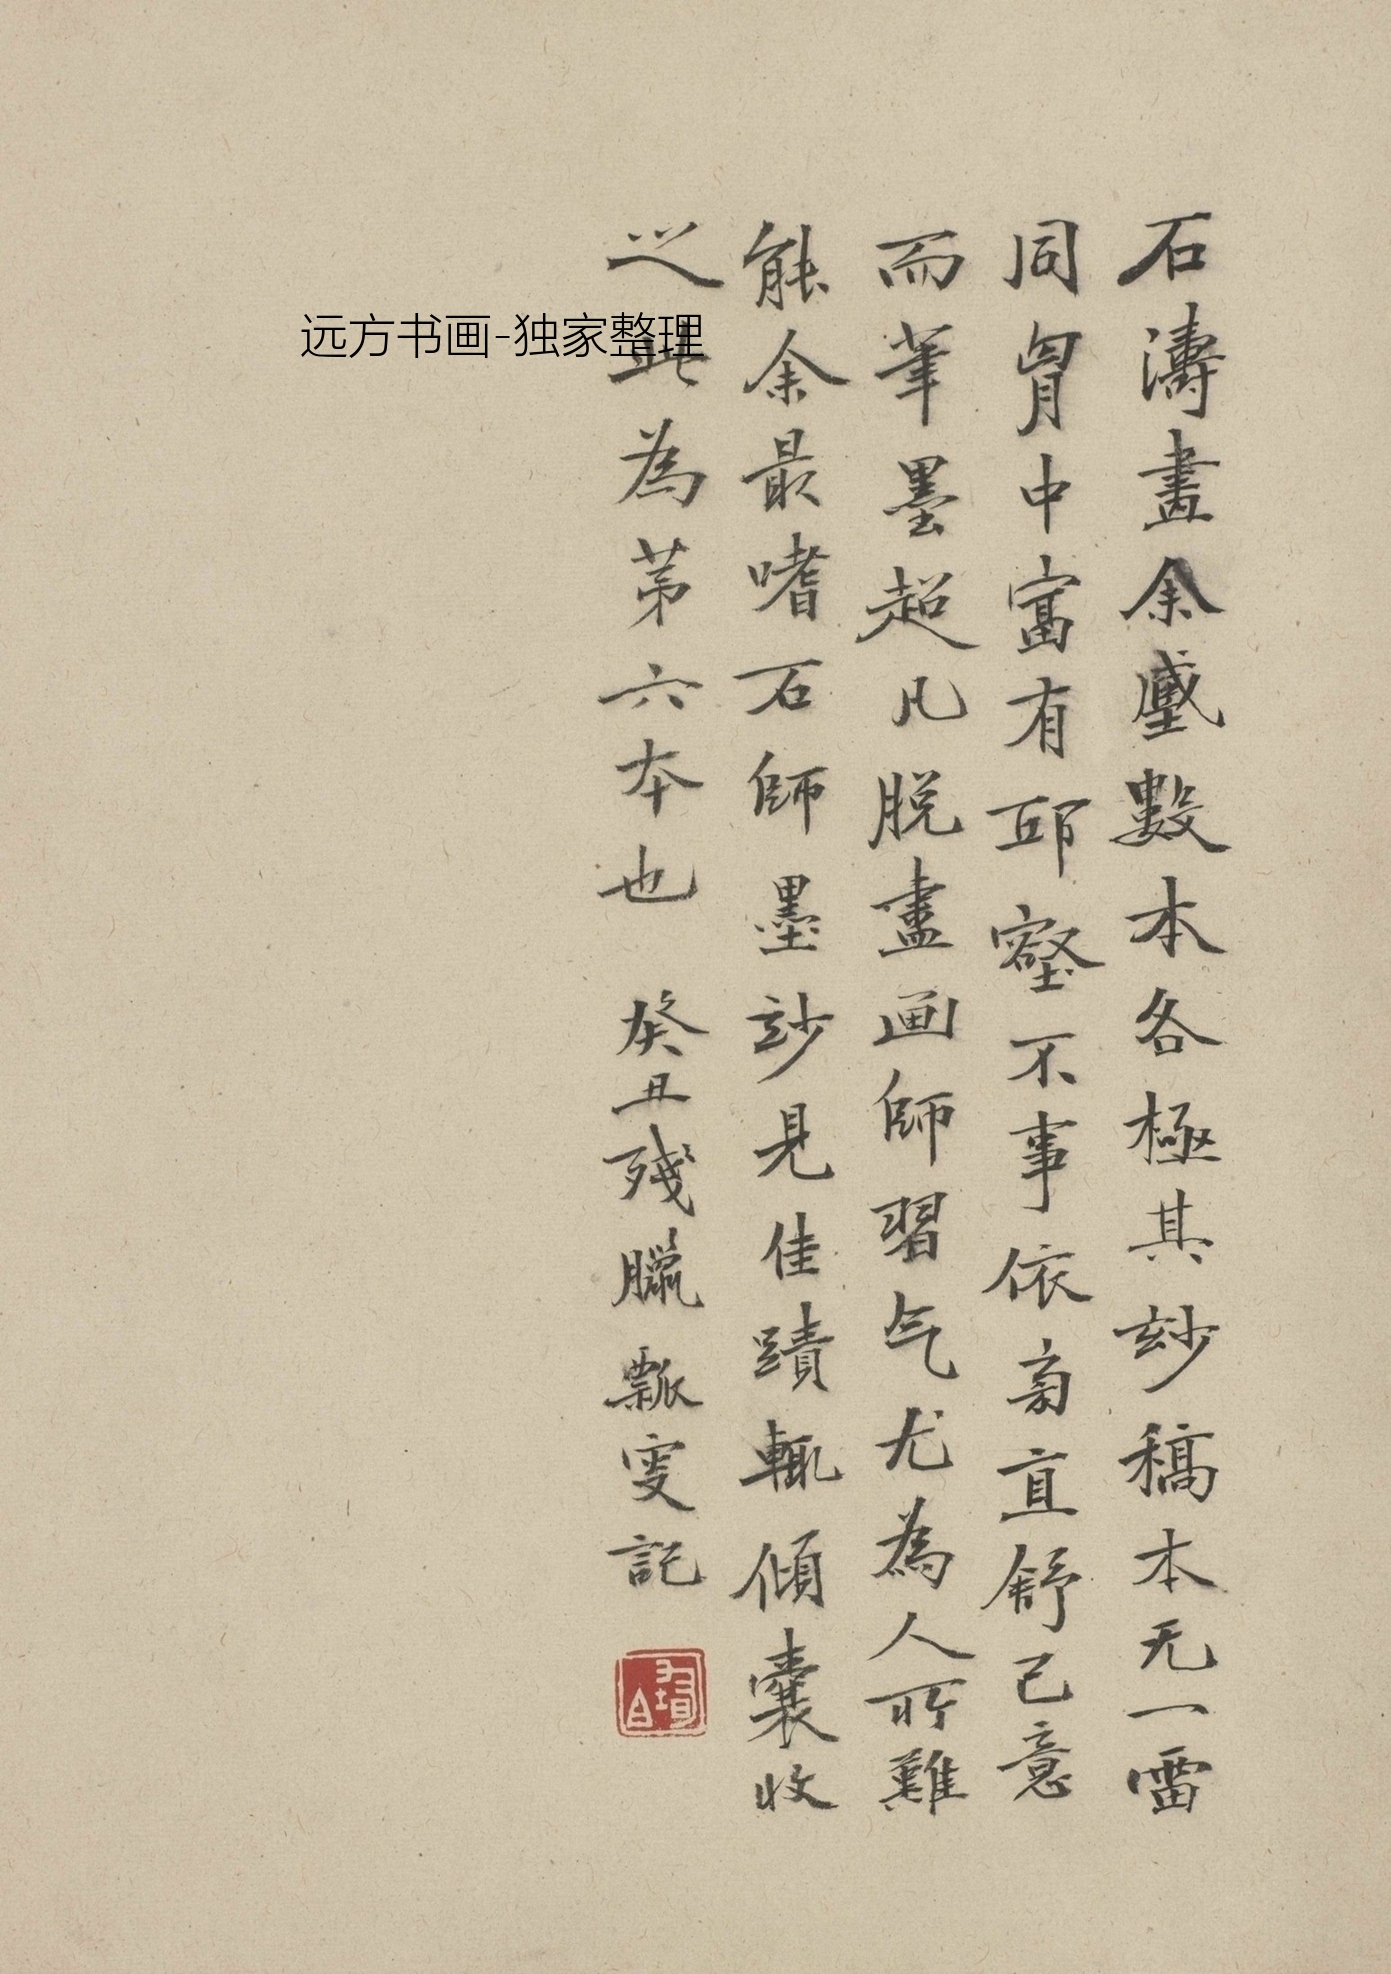 石濤畫余藏數本各極其玅稿本无一雷
同胷中富有邱壑不事依傍直舒己意
而筆墨超凡脫盡画師習气尤為人所難
能余最嗜石師墨玅見佳蹟輒傾囊收
之此為苐六本也 癸丑殘臘瓢叟記
远方书画-独家整理